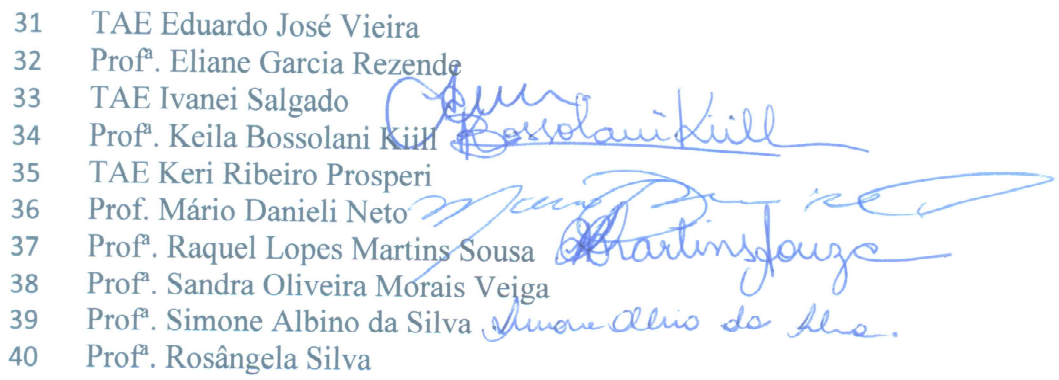 31 TAE Eduardo José Vieira
32 Profª. Eliane Garcia Rezende
33 TAE Ivanei Salgado
34 Profª. Keila Bossolani Kiill Bossolani Kiill
35 TAE Keri Ribeiro Prosperi
36 Prof. Mário Danieli Neto
37 Profª. Raquel Lopes Martins Sousa Martins Souza
38 Profª. Sandra Oliveira Morais Veiga
39 Profª. Simone Albino da Silva Simone Albino da Silva.
40 Profª. Rosângela Silva